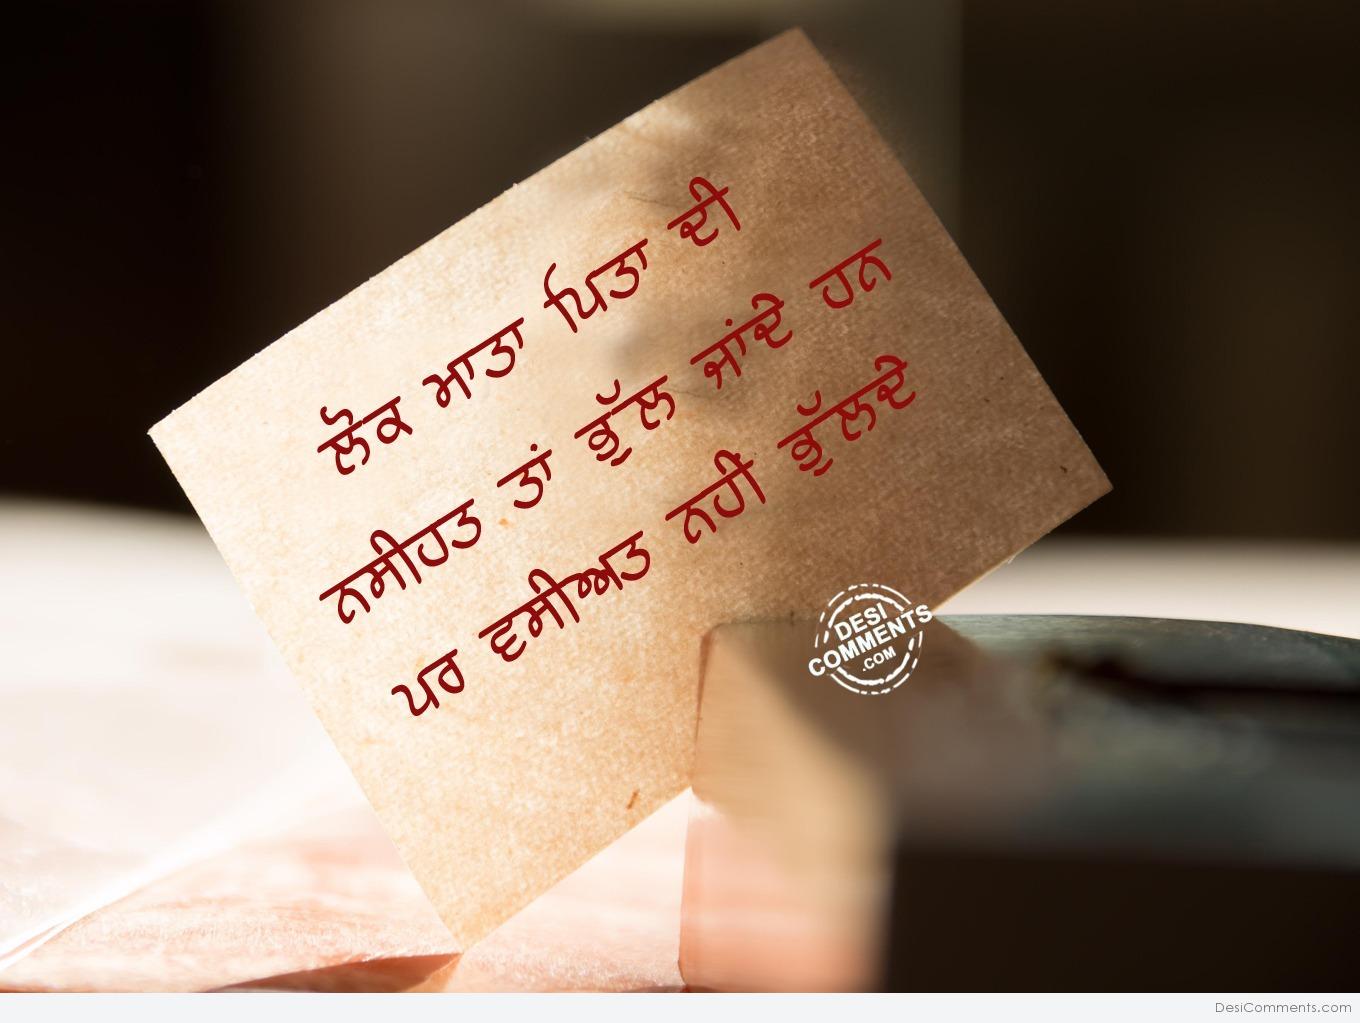 ਲੋਕ ਮਾਤਾ ਪਿਤਾ ਦੀ
ਨਸੀਹਤ ਤਾਂ ਭੁੱਲ ਜਾਂਦੇ ਹਨ
ਪਰ ਵਸੀਅਤ ਨਹੀਂ ਭੁੱਲਦੇ
DESI
COMMENTS
.COM
DesiComments.com